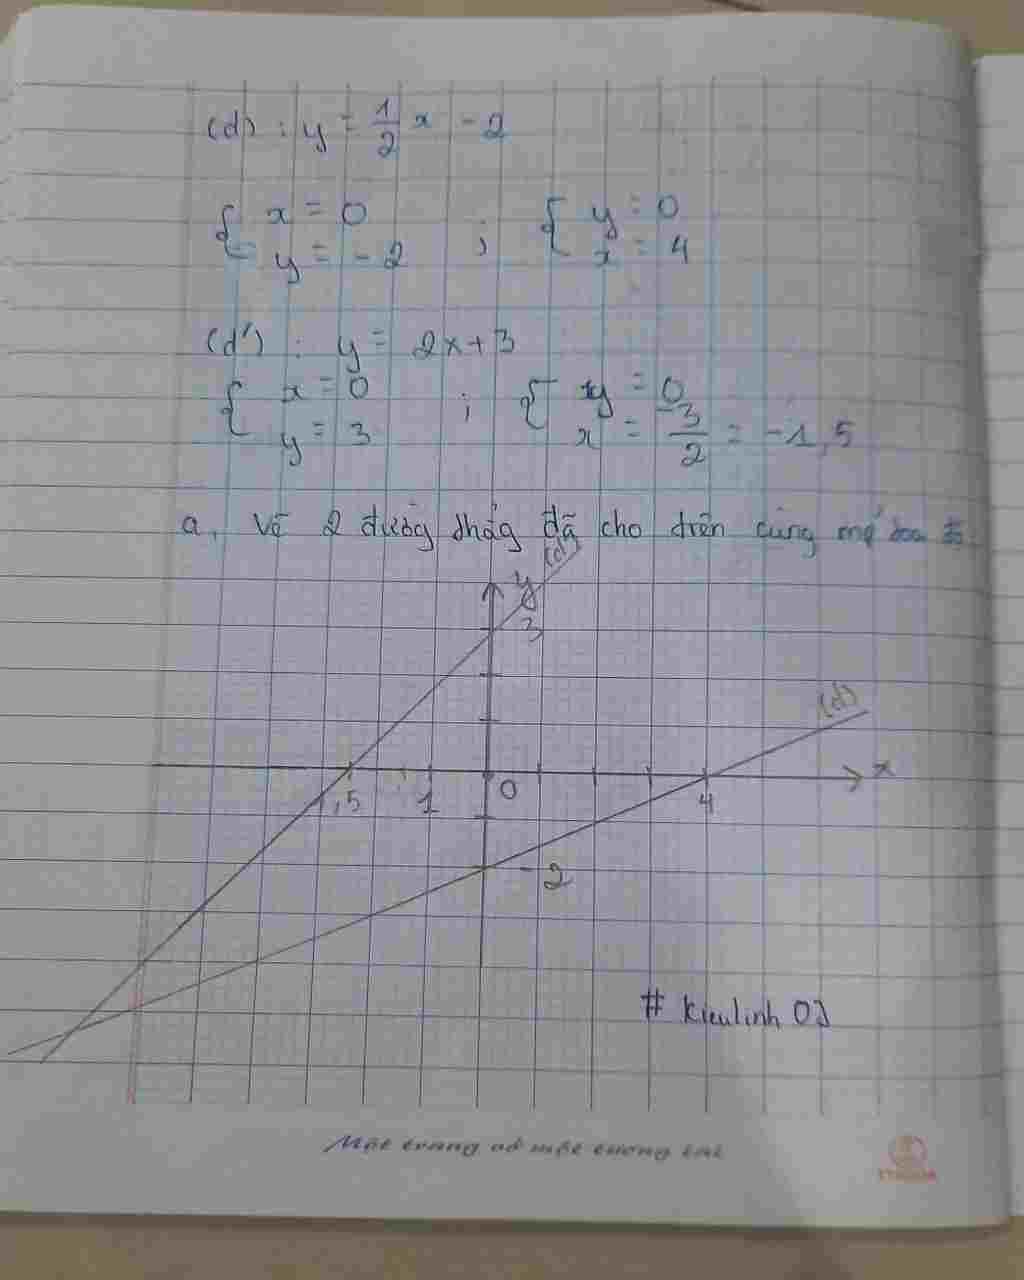 (d) : y = 1/2 x - 2
{ x = 0 ; { y = 0
y = - 2 x = 4
(d') : y = 2x + 3
{ x = 0 ; { y = 0
y = 3 x = -3/2 = -1,5
a, Vẽ 2 đường thẳng đã cho trên cùng
(d')
y
3
(d)
x
,5 1 0 4
-2
# Kieulinh
Một trang vở một tương lai